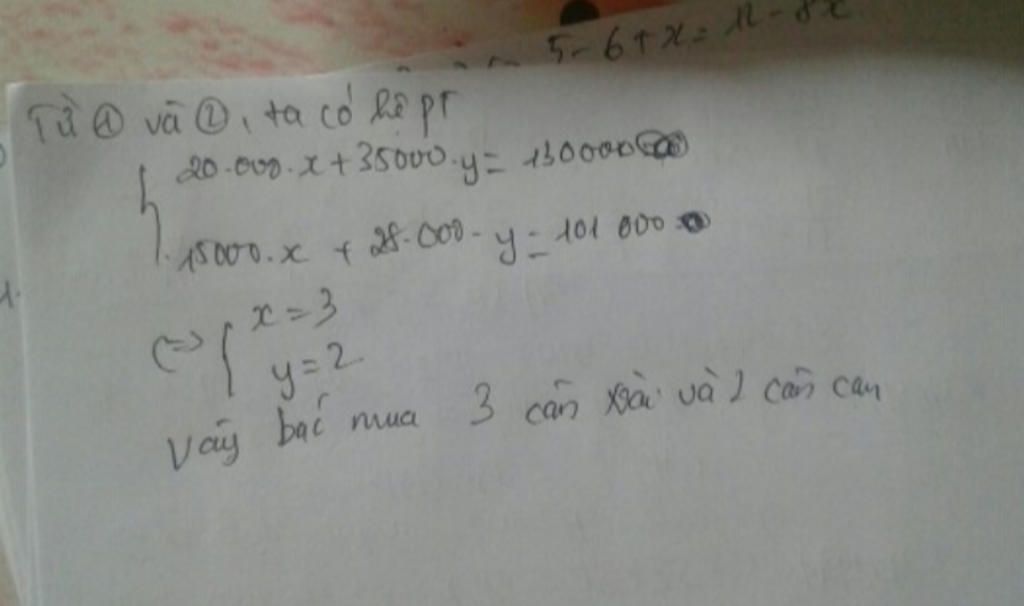 5 - 6 + x = 12 - 8x
Từ ① và ②, ta có hệ pt
20.000.x + 35000.y = 130000
15000.x + 28.000.y = 101 000
<=> { x = 3
y = 2
Vậy bác mua 3 cân xoài và 2 cân cam